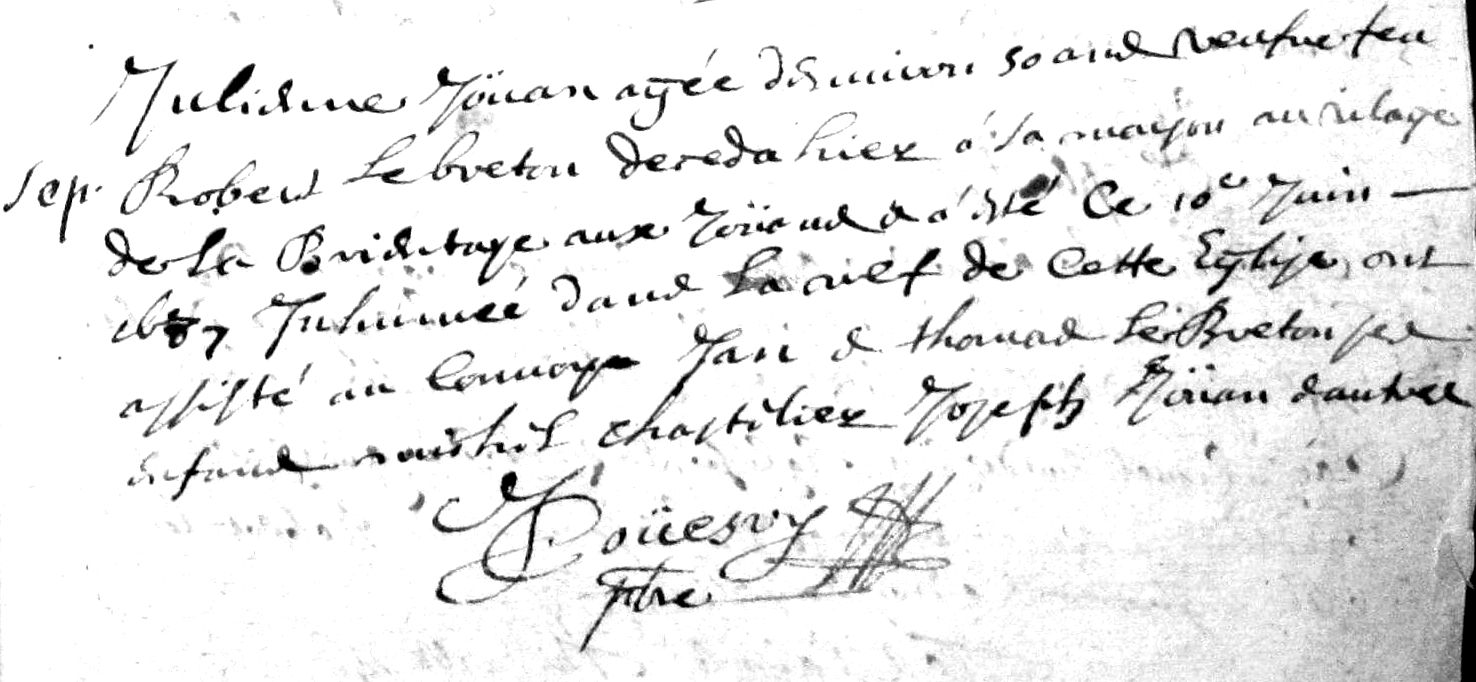 Julienne Joüan agée d'enuiron 50 ans veufue feu
sep. Robert Lebreton deceda hier a sa maison au vilage
de la aux Joüans & a esté Ce 10e Juin —
1687 Inhumée dans La nef de Cette Eglise, ont
assisté au Conuoye Jan & thomas Le Breton ses
enfans michel chastelier Joseph Joüan & autres
Doüesvy
ptre